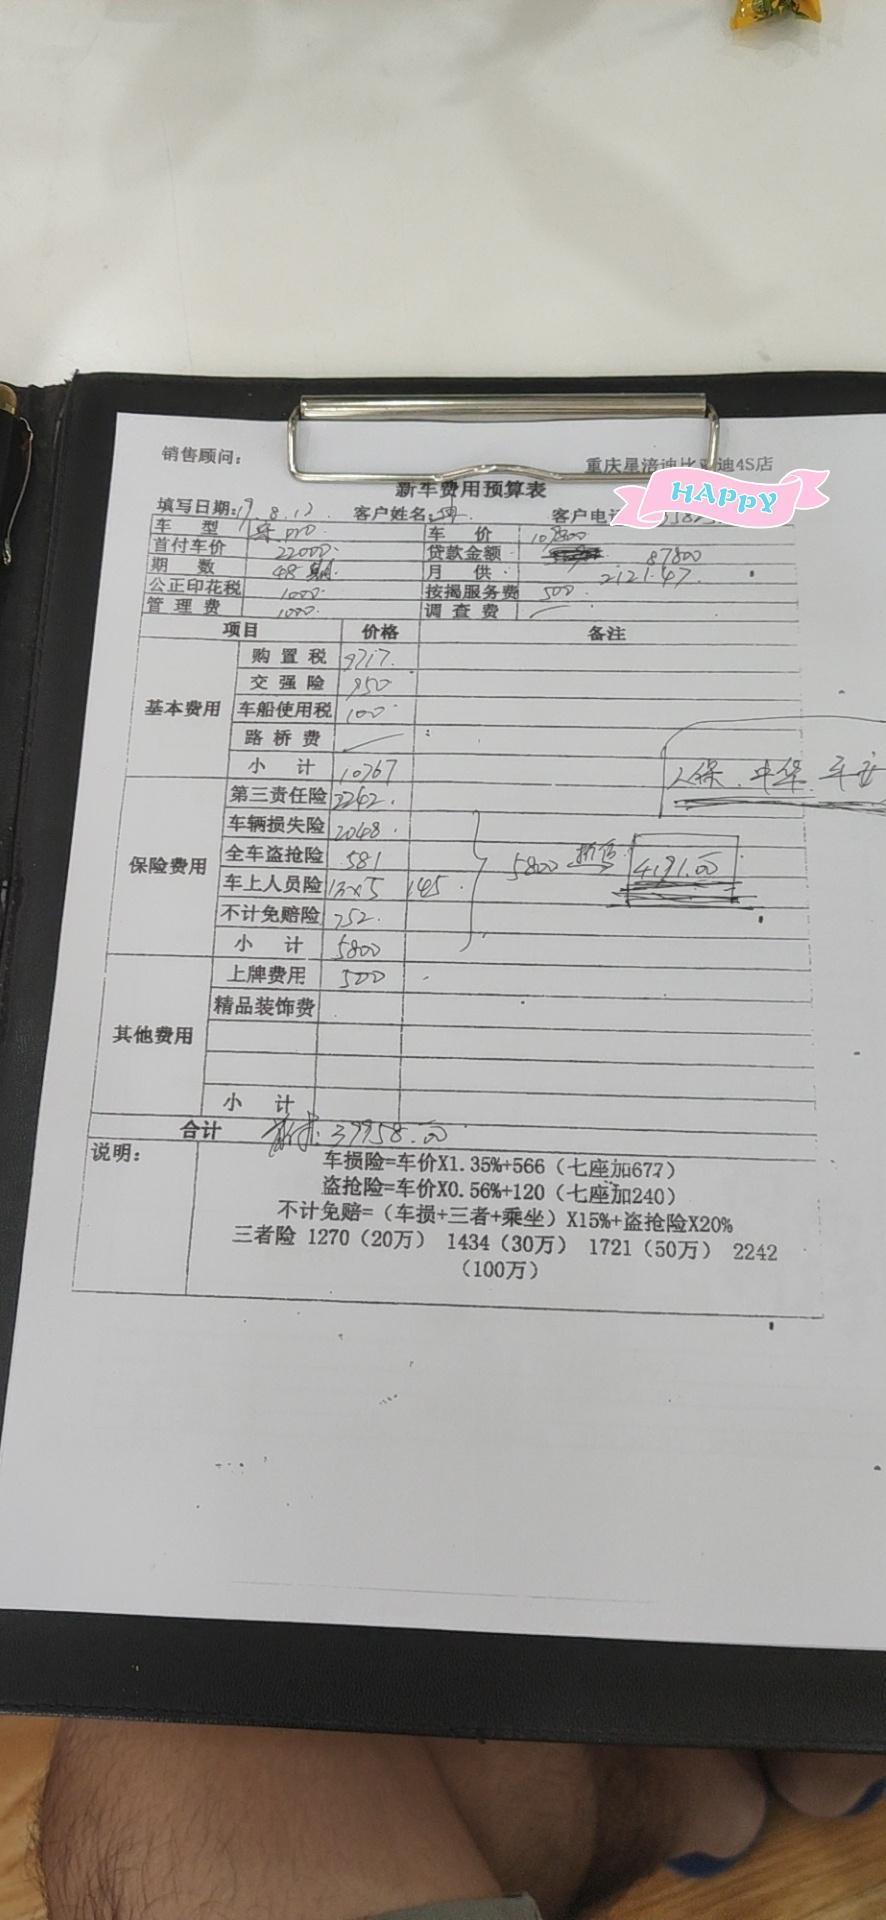 销售顾问： 重庆星涪迪比亚迪4S店
新车费用预算表
HAPPY
填写日期：19.8.17. 客户姓名： 客户电话
车型 宋pro 车价 109800
首付车价 22000. 贷款金额 87800
期数 48期. 月供. 2121.47.
公正印花税 1000. 按揭服务费 500.
管理费 1000. 调查费
项目 价格 备注
基本费用
购置税 9717.
交强险 950
车船使用税 100
路桥费
小计 10767
人保.中华.平安
保险费用
第三责任险 2242.
车辆损失险 2048.
全车盗抢险 581
5800 折后 4191.00
车上人员险 13x5 145.
不计免赔险 752.
小计 5800
其他费用
上牌费用 500
精品装饰费
小计
合计 首付：39958.00
说明：
车损险=车价X1.35%+566（七座加677）
盗抢险=车价X0.56%+120（七座加240）
不计免赔=（车损+三者+乘坐）X15%+盗抢险X20%
三者险 1270（20万） 1434（30万） 1721（50万） 2242
（100万）